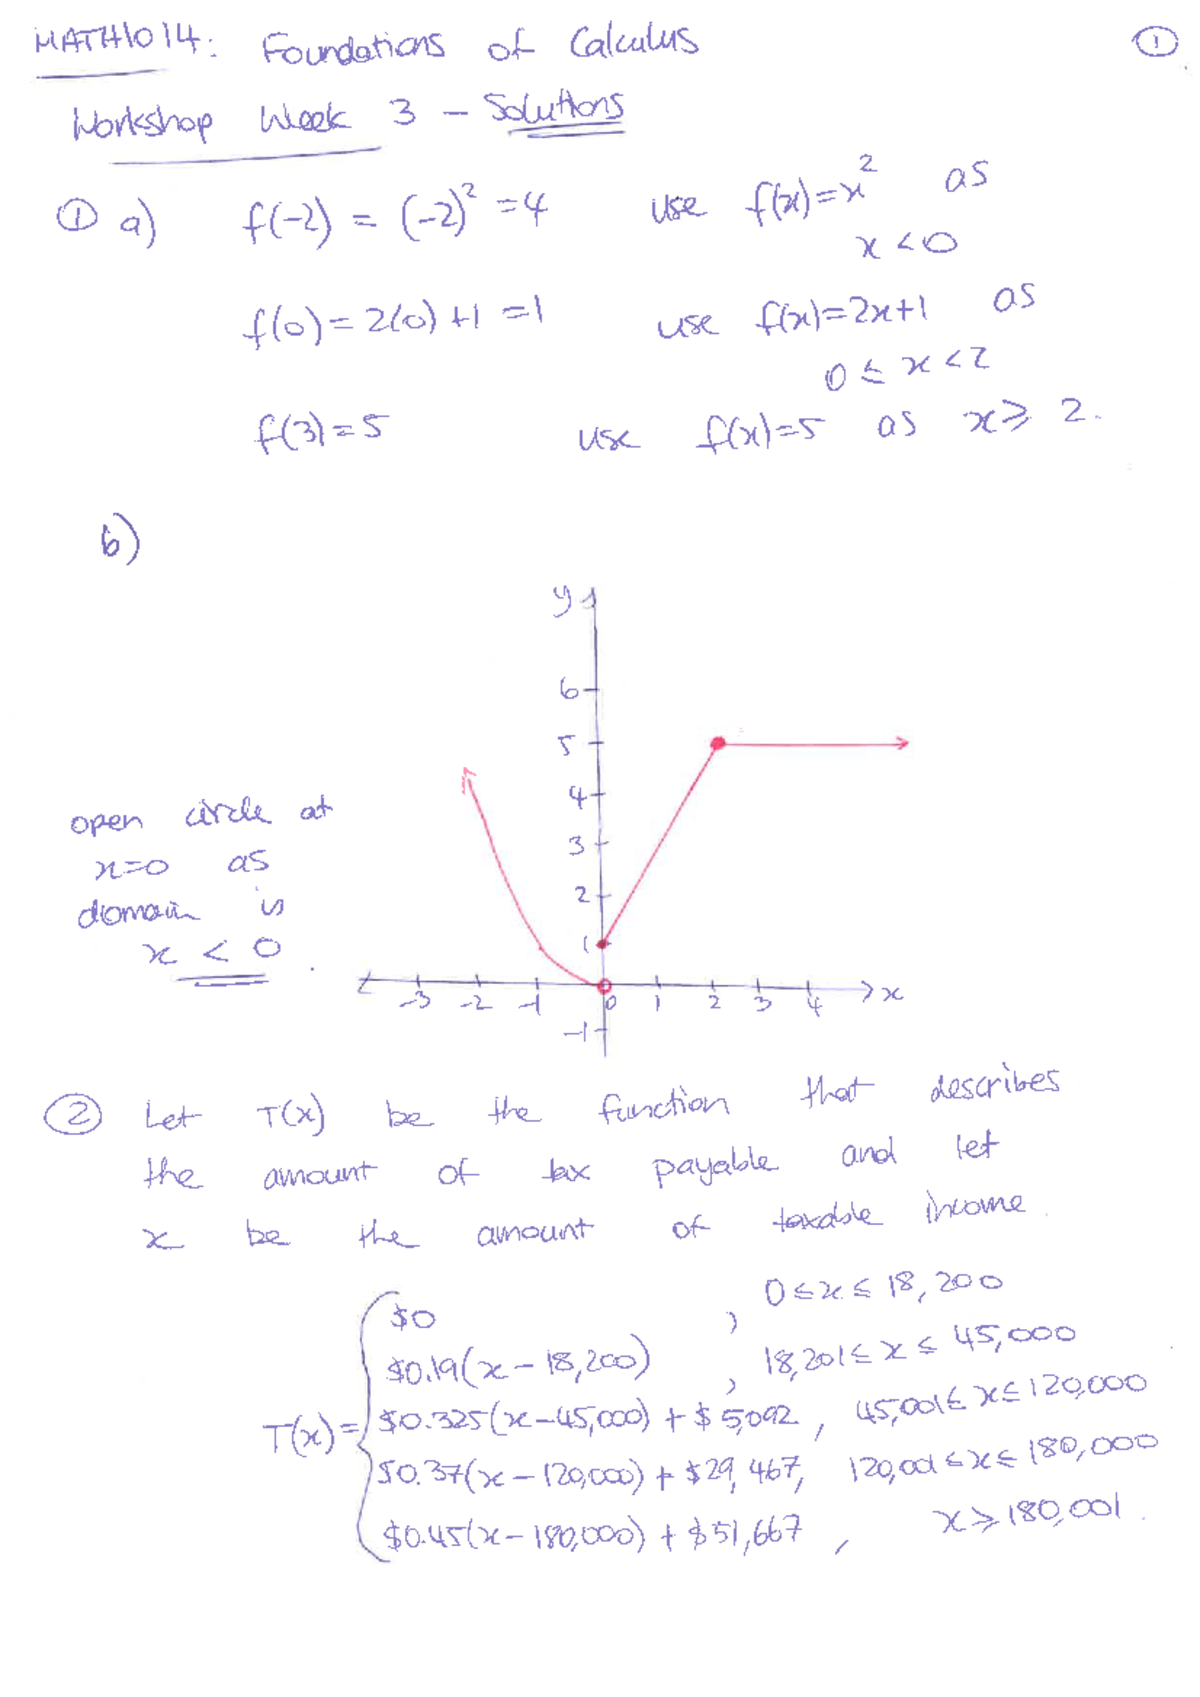 MATH1014: Foundations of Calculus ①
Workshop Week 3 – Solutions
① a) f(-2) = (-2)² = 4 use f(x)=x² as
x < 0
f(0) = 2(0) + 1 = 1 use f(x)=2x+1 as
0 ≤ x < 2
f(3) = 5 use f(x)=5 as x ≥ 2.
b)
y
6
5
4
3
2
1
-3 -2 -1 0 1 2 3 4 x
-1
open circle at
x=0 as
domain is
x < 0.
② Let T(x) be the function that describes
the amount of tax payable and let
x be the amount of taxable income.
$0 , 0 ≤ x ≤ 18,200
$0.19(x – 18,200) , 18,201 ≤ x ≤ 45,000
T(x) = { $0.325(x–45,000) + $5,092 , 45,001 ≤ x ≤ 120,000
$0.37(x – 120,000) + $29,467, 120,001 ≤ x ≤ 180,000
$0.45(x – 180,000) + $51,667 , x ≥ 180,001.